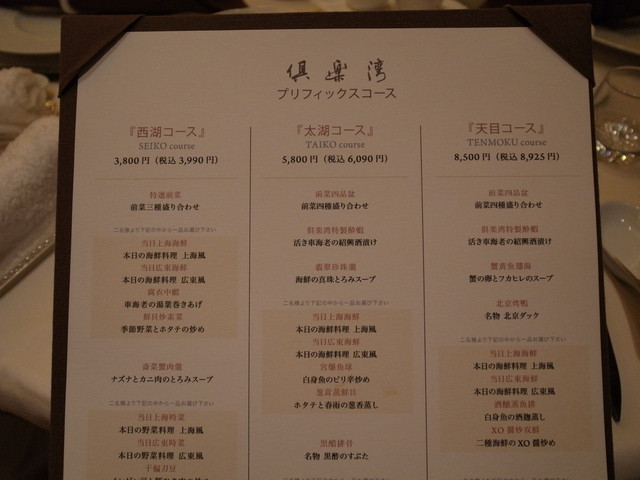 倶楽湾
プリフィックスコース
『西湖コース』
SEIKO course
3,800円（税込 3,990円）
特選前菜
前菜三種盛り合わせ
二名様より下記の中から一品お選び下さい
当日上海海鮮
本日の海鮮料理 上海風
当日広東海鮮
本日の海鮮料理 広東風
車海老の湯葉巻きあげ
季節野菜とホタテの炒め
ナズナとカニ肉のとろみスープ
二名様より下記の中から一品お選び下さい
当日上海時菜
本日の野菜料理 上海風
当日広東時菜
本日の野菜料理 広東風
干煸刀豆
『太湖コース』
TAIKO course
5,800円（税込 6,090円）
前菜四品盆
前菜四種盛り合わせ
倶楽湾特製酔蝦
活き車海老の紹興酒漬け
翡翠珍珠羹
海鮮の真珠とろみスープ
二名様より下記の中から一品お選び下さい
当日上海海鮮
本日の海鮮料理 上海風
当日広東海鮮
本日の海鮮料理 広東風
宮爆魚球
白身魚のピリ辛炒め
葱茸蒸鮮貝
ホタテと春雨の葱香蒸し
黒醋排骨
名物 黒酢のすぶた
『天目コース』
TENMOKU course
8,500円（税込 8,925円）
前菜四品盆
前菜四種盛り合わせ
倶楽湾特製酔蝦
活き車海老の紹興酒漬け
蟹黄魚翅羹
蟹の卵とフカヒレのスープ
北京烤鴨
名物 北京ダック
二名様より下記の中から一品お選び下さい
当日上海海鮮
本日の海鮮料理 上海風
当日広東海鮮
本日の海鮮料理 広東風
酒醸蒸魚排
白身魚の酒麹蒸し
XO醤炒双鮮
二種海鮮のXO醤炒め